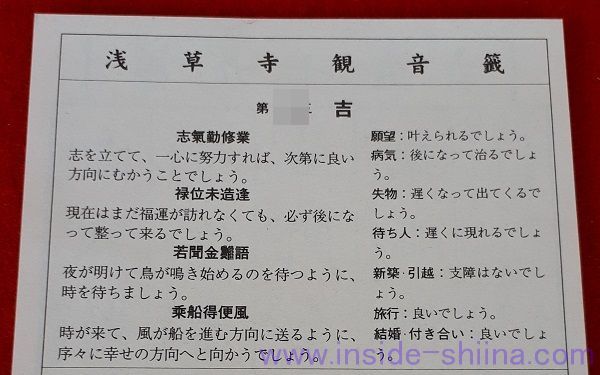 浅草寺観音籤
第 吉
志氣勤修業
志を立てて、一心に努力すれば、次第に良い
方向にむかうことでしょう。
禄位未造逢
現在はまだ福運が訪れなくても、必ず後にな
って整って来るでしょう。
若聞金雞語
夜が明けて鳥が鳴き始めるのを待つように、
時を待ちましょう。
乗船得便風
時が来て、風が船を進む方向に送るように、
序々に幸せの方向へと向かうでしょう。
願望：叶えられるでしょう。
病気：後になって治るでしょ
う。
失物：遅くなって出てくるで
しょう。
待ち人：遅くに現れるでしょ
う。
新築・引越：支障はないでし
ょう。
旅行：良いでしょう。
結婚・付き合い：良いでしょ
う。
www.inside-shiina.com